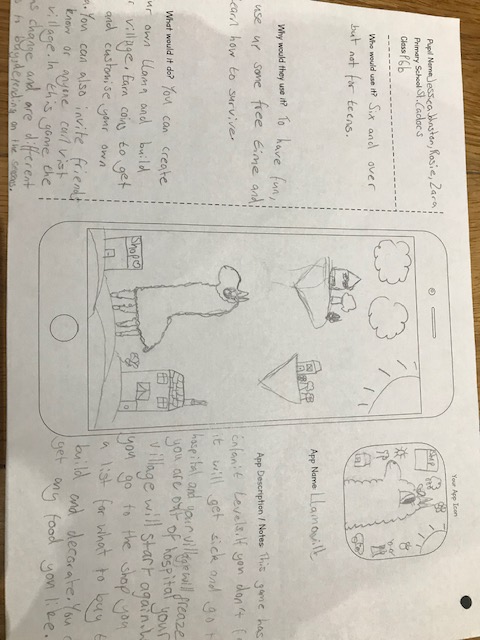 Pupil Name: Jessica Johnston, Rosie, Zara
Primary School: St. Cadocs
Class: P6b
Who would use it? Six and over
but not for teens.
Why would they use it? To have fun,
use ur some free time and
learn how to survive
What would it do? You can create
ur own llama and build
r village. Earn coins to get
and customise your own
a. You can also invite friend
know or anyone can visit
village. In this game the
ns change and are different
depending on the season.
Shop
Your App Icon
Shop
App Name: Llamaville
App Description / Notes: This game has
levels. if you don't
it will get sick and go t
hospital and your village will
you are out of hospital your
village will start again. W
you go to the shop you
a list for what to buy t
build and decorate. You c
get any food you like.